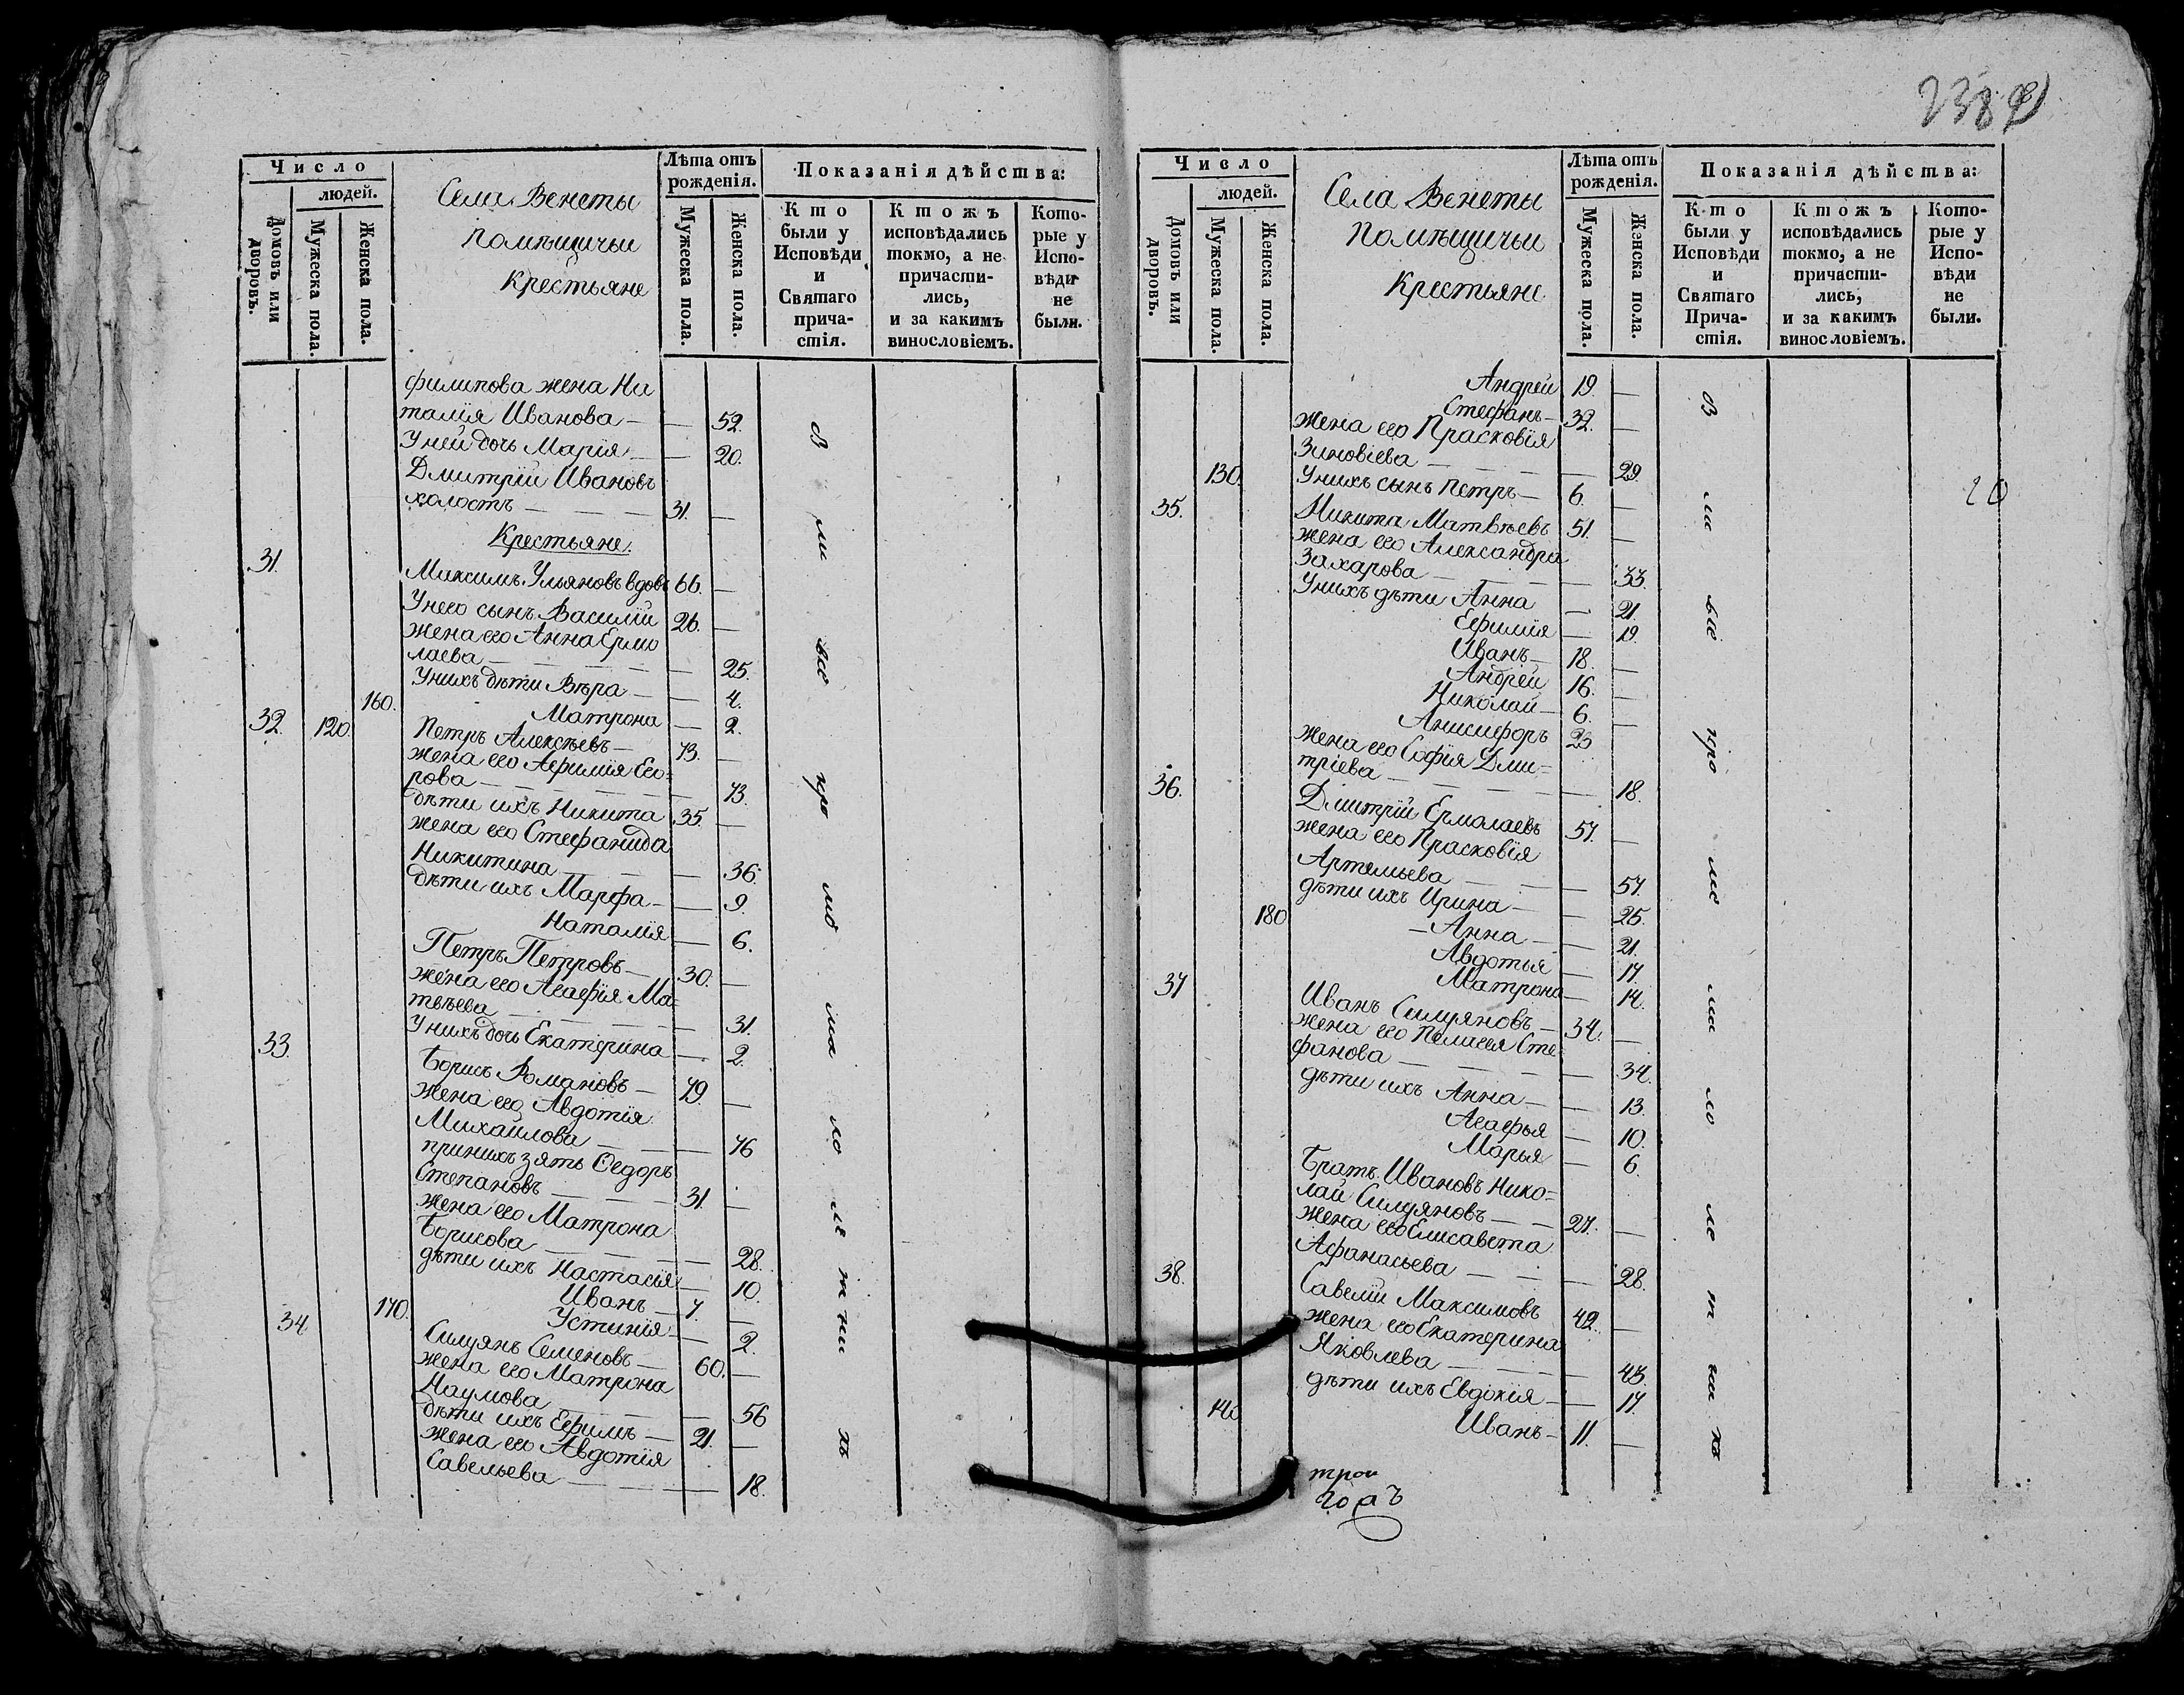 238
Число
людей.
Домовъ или дворовъ.
Мужеска пола.
Женска пола.
Села Венеты
Помѣщичьи
Крестьяне
Лѣта отъ рожденія.
Мужеска пола.
Женска пола.
Показанія дѣйства:
Кто были у Исповѣди и Святаго причастія.
Ктожъ исповѣдались токмо, а не причастились, и за какимъ винословіемъ.
Которые у Исповѣди не были.
филипова жена На
талія Иванова — — 52.
У ней дочь Марія — — 20.
Дмитрій Ивановъ
холостъ — 31. —
Крестьяне.
31. Максимъ Ульяновъ вдовъ 66. —
У него сынъ Василій 26. —
жена его Анна Ермо
лаева — — 25.
У нихъ дѣти Вѣра — — 4.
160. Матрона — 2.
32. 120. Петръ Алексѣевъ — 73. —
жена его Афимія Его=
рова — — 73.
дѣти ихъ Никита 35. —
жена его Стефанида
Никитина — — 36.
дѣти ихъ Марфа — — 9.
Наталія — 6.
Петръ Петровъ — 30. —
жена его Агафія Ма=
твѣева — — 31.
У нихъ дочь Екатерина — 2.
33. Борисъ Романовъ — 79. —
жена его Авдотія
Михайлова — — 76
при нихъ зять Ѳедоръ
Степановъ — 31. —
жена его Матрона
Борисова — — 28.
дѣти ихъ Настасія — 10.
Иванъ — 7. —
170. Устинія — 2.
34. Силуянъ Семеновъ — 60. —
жена его Матрона
Наумова — — 56
дѣти ихъ Ефимъ — 21. —
жена его Авдотія
Савельева — — 18.
Число
людей.
Домовъ или дворовъ.
Мужеска пола.
Женска пола.
Села Венеты
Помѣщичьи
Крестьяне
Лѣта отъ рожденія.
Мужеска пола.
Женска пола.
Показанія дѣйства:
Кто были у Исповѣди и Святаго Причастія.
Ктожъ исповѣдались токмо, а не причастились, и за какимъ винословіемъ.
Которые у Исповѣди не были.
Андрей 19. —
Стефанъ — 32. —
жена его Прасковія
Зиновіева — — 29.
130. У нихъ сынъ Петръ — 6. —
35. Никита Матвѣевъ 51. —
жена его Александра
Захарова — — 33.
У нихъ дѣти Анна — 21.
Ефимія — 19.
Иванъ — 18. —
Андрей 16. —
Николай — 6. —
Анисифоръ 23
жена его Софія Дми=
тріева — — 18.
36. Дмитрій Ермолаевъ 57. —
жена его Прасковія
Артемьева — — 57.
дѣти ихъ Ирина — — 25.
180 — Анна — — 21.
Авдотья — 17.
Матрона — 14.
37 Иванъ Силуяновъ — 34. —
жена его Пелагея Сте=
фанова — — 34.
дѣти ихъ Анна — — 13.
Агафья — 10.
Марья — 6.
Братъ Ивановъ Нико=
лай Силуяновъ — — 27. —
жена его Елисавета
Афанасьева — — 28.
38. Савелій Максимовъ 42. —
жена его Екатерина
Яковлева — — 43.
дѣти ихъ Евдокія — — 17.
140 Иванъ — 11. —